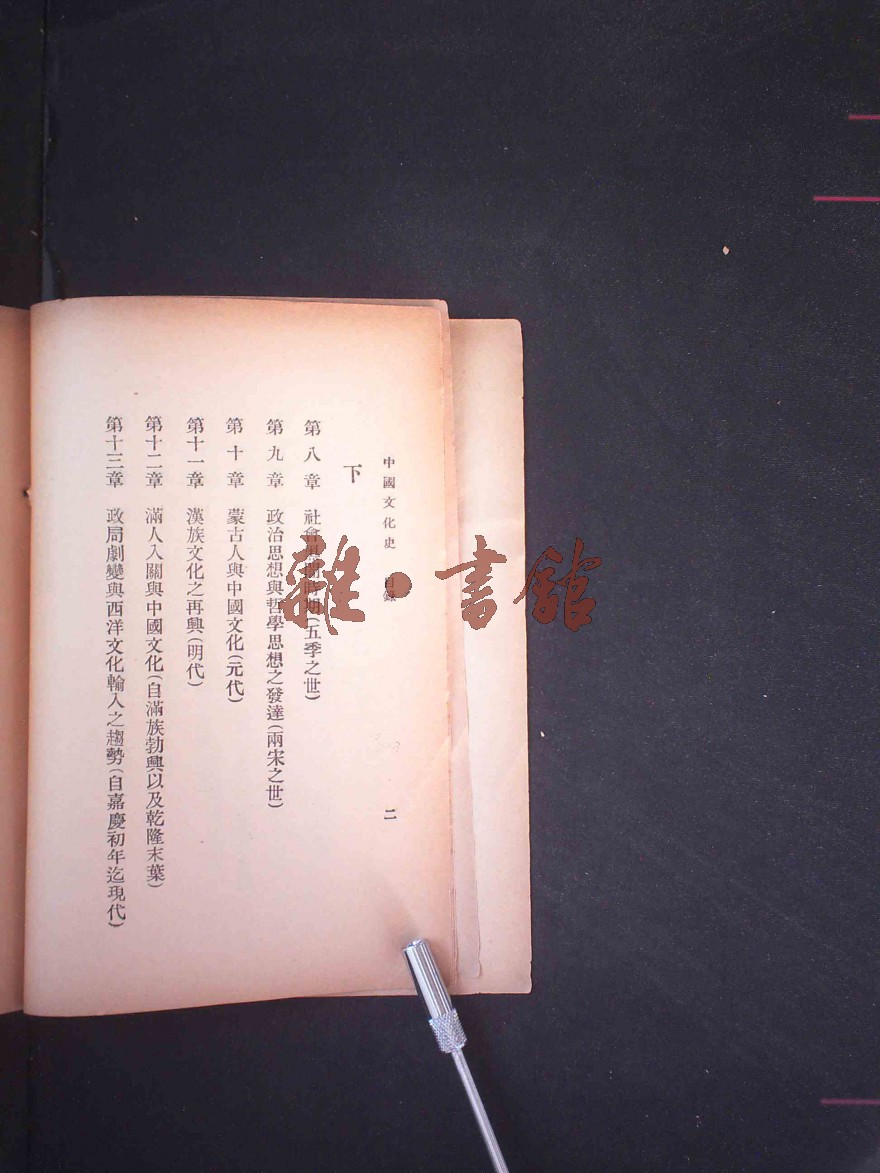 中國文化史　目錄　二
下
第八章　社會展開時期（五季之世）
第九章　政治思想與哲學思想之發達（兩宋之世）
第十章　蒙古人與中國文化（元代）
第十一章　漢族文化之再興（明代）
第十二章　滿人入關與中國文化（自滿族勃興以及乾隆末葉）
第十三章　政局劇變與西洋文化輸入之趨勢（自嘉慶初年迄現代）
雜·書館